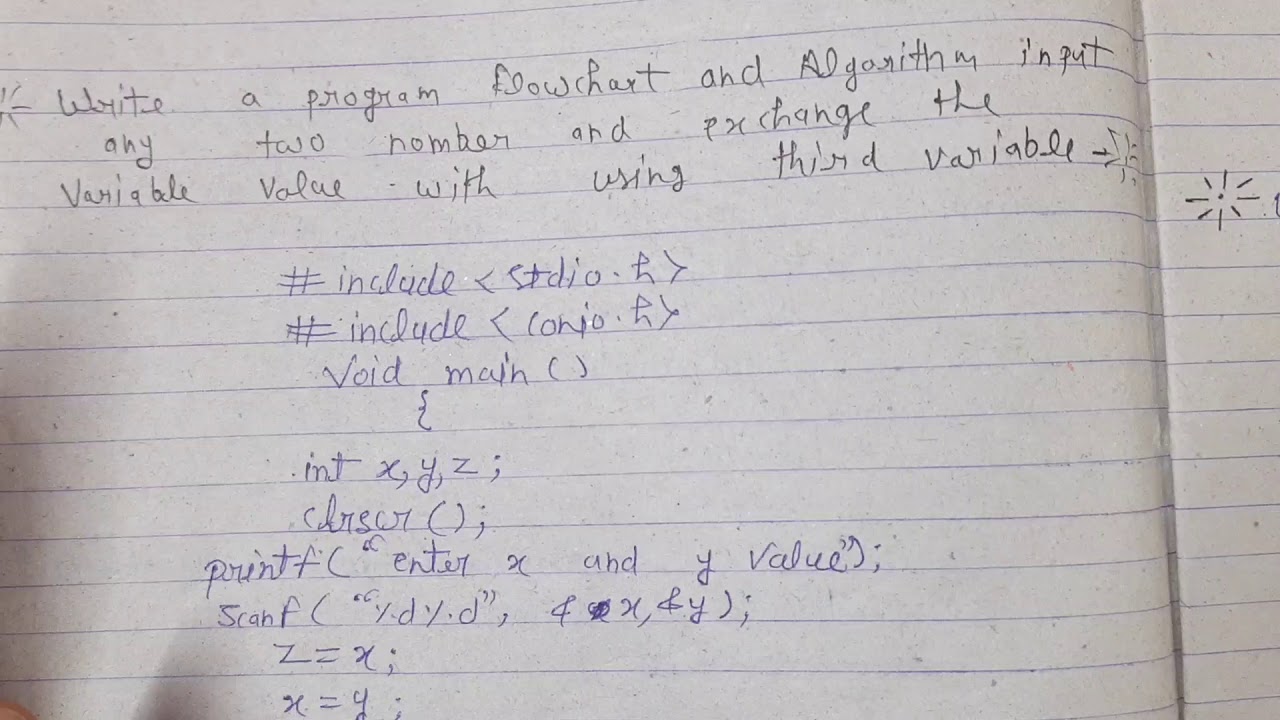 Write a program flowchart and Algorithm input
any two nomber and exchange the
Variable Value with using third variable →
# include < stdio.h >
# include < conio.h >
Void main ()
{
int x, y, z ;
clrscr ();
printf ( "enter x and y Value");
Scanf ( "%d%d", & x, & y );
z = x ;
x = y ;